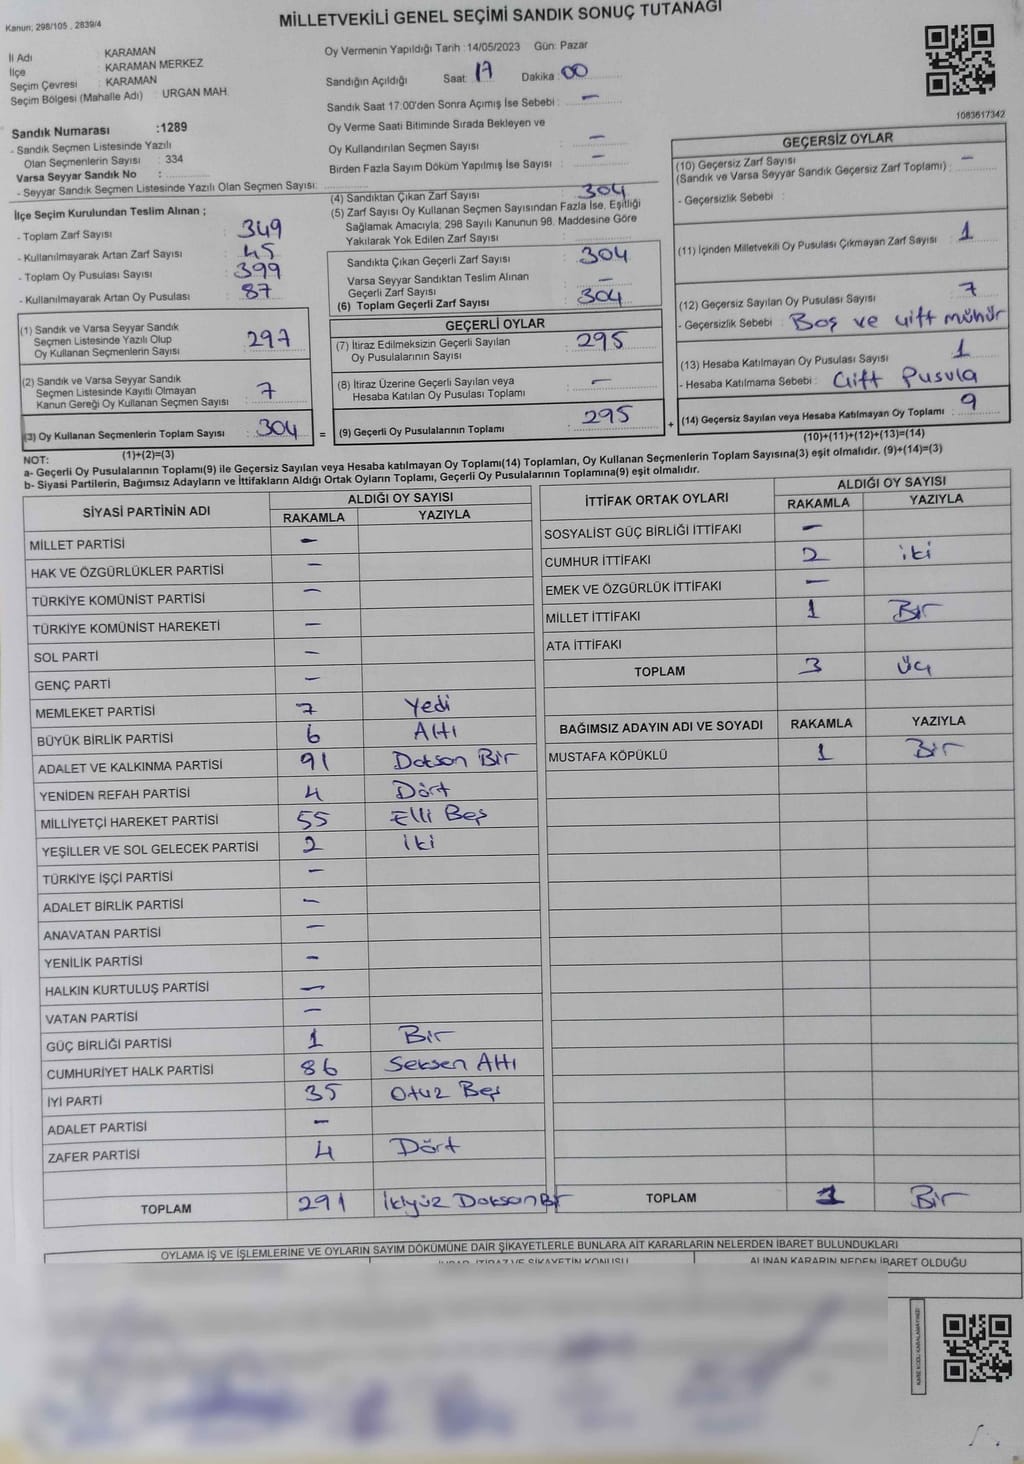 Kanun; 298/105 , 2839/4
MİLLETVEKİLİ GENEL SEÇİMİ SANDIK SONUÇ TUTANAĞI
İl Adı : KARAMAN
İlçe : KARAMAN MERKEZ
Seçim Çevresi : KARAMAN
Seçim Bölgesi (Mahalle Adı) : URGAN MAH.
Sandık Numarası :1289
- Sandık Seçmen Listesinde Yazılı
Olan Seçmenlerin Sayısı : 334
Varsa Seyyar Sandık No :
- Seyyar Sandık Seçmen Listesinde Yazılı Olan Seçmen Sayısı:
Oy Vermenin Yapıldığı Tarih :14/05/2023 Gün: Pazar
Sandığın Açıldığı Saat: 17 Dakika: 00
Sandık Saat 17:00'den Sonra Açımış İse Sebebi : -
Oy Verme Saati Bitiminde Sırada Bekleyen ve
Oy Kullandırılan Seçmen Sayısı : -
Birden Fazla Sayım Döküm Yapılmış İse Sayısı : -
1083617342
İlçe Seçim Kurulundan Teslim Alınan ;
- Toplam Zarf Sayısı : 349
- Kullanılmayarak Artan Zarf Sayısı : 45
- Toplam Oy Pusulası Sayısı : 399
- Kullanılmayarak Artan Oy Pusulası : 87
(1) Sandık ve Varsa Seyyar Sandık
Seçmen Listesinde Yazılı Olup
Oy Kullanan Seçmenlerin Sayısı : 297
(2) Sandık ve Varsa Seyyar Sandık
Seçmen Listesinde Kayıtlı Olmayan
Kanun Gereği Oy Kullanan Seçmen Sayısı : 7
(3) Oy Kullanan Seçmenlerin Toplam Sayısı : 304
(1)+(2)=(3)
(4) Sandıktan Çıkan Zarf Sayısı : 304
(5) Zarf Sayısı Oy Kullanan Seçmen Sayısından Fazla İse, Eşitliği
Sağlamak Amacıyla; 298 Sayılı Kanunun 98. Maddesine Göre
Yakılarak Yok Edilen Zarf Sayısı :
Sandıkta Çıkan Geçerli Zarf Sayısı : 304
Varsa Seyyar Sandıktan Teslim Alınan
Geçerli Zarf Sayısı : -
(6) Toplam Geçerli Zarf Sayısı : 304
GEÇERLİ OYLAR
(7) İtiraz Edilmeksizin Geçerli Sayılan
Oy Pusulalarının Sayısı : 295
(8) İtiraz Üzerine Geçerli Sayılan veya
Hesaba Katılan Oy Pusulası Toplamı : -
= (9) Geçerli Oy Pusulalarının Toplamı : 295
GEÇERSİZ OYLAR
(10) Geçersiz Zarf Sayısı
(Sandık ve Varsa Seyyar Sandık Geçersiz Zarf Toplamı) : -
- Geçersizlik Sebebi :
(11) İçinden Milletvekili Oy Pusulası Çıkmayan Zarf Sayısı : 1
(12) Geçersiz Sayılan Oy Pusulası Sayısı : 7
- Geçersizlik Sebebi : Boş ve çift mühür
(13) Hesaba Katılmayan Oy Pusulası Sayısı : 1
- Hesaba Katılmama Sebebi : Çift Pusula
+ (14) Geçersiz Sayılan veya Hesaba Katılmayan Oy Toplamı : 9
(10)+(11)+(12)+(13)=(14)
NOT:
a- Geçerli Oy Pusulalarının Toplamı(9) ile Geçersiz Sayılan veya Hesaba katılmayan Oy Toplamı(14) Toplamları, Oy Kullanan Seçmenlerin Toplam Sayısına(3) eşit olmalıdır. (9)+(14)=(3)
b- Siyasi Partilerin, Bağımsız Adayların ve İttifakların Aldığı Ortak Oyların Toplamı, Geçerli Oy Pusulalarının Toplamına(9) eşit olmalıdır.
SİYASİ PARTİNİN ADI ALDIĞI OY SAYISI
RAKAMLA YAZIYLA
MİLLET PARTİSİ -
HAK VE ÖZGÜRLÜKLER PARTİSİ -
TÜRKİYE KOMÜNİST PARTİSİ -
TÜRKİYE KOMÜNİST HAREKETİ -
SOL PARTİ -
GENÇ PARTİ -
MEMLEKET PARTİSİ 7 Yedi
BÜYÜK BİRLİK PARTİSİ 6 Altı
ADALET VE KALKINMA PARTİSİ 91 Doksan Bir
YENİDEN REFAH PARTİSİ 4 Dört
MİLLİYETÇİ HAREKET PARTİSİ 55 Elli Beş
YEŞİLLER VE SOL GELECEK PARTİSİ 2 iki
TÜRKİYE İŞÇİ PARTİSİ -
ADALET BİRLİK PARTİSİ -
ANAVATAN PARTİSİ -
YENİLİK PARTİSİ -
HALKIN KURTULUŞ PARTİSİ -
VATAN PARTİSİ -
GÜÇ BİRLİĞİ PARTİSİ 1 Bir
CUMHURİYET HALK PARTİSİ 86 Seksen Altı
İYİ PARTİ 35 Otuz Beş
ADALET PARTİSİ -
ZAFER PARTİSİ 4 Dört
TOPLAM 291 İkiyüz Doksan Bir
İTTİFAK ORTAK OYLARI ALDIĞI OY SAYISI
RAKAMLA YAZIYLA
SOSYALİST GÜÇ BİRLİĞİ İTTİFAKI -
CUMHUR İTTİFAKI 2 iki
EMEK VE ÖZGÜRLÜK İTTİFAKI -
MİLLET İTTİFAKI 1 Bir
ATA İTTİFAKI
TOPLAM 3 Üç
BAĞIMSIZ ADAYIN ADI VE SOYADI RAKAMLA YAZIYLA
MUSTAFA KÖPÜKLÜ 1 Bir
TOPLAM 1 Bir
OYLAMA İŞ VE İŞLEMLERİNE VE OYLARIN SAYIM DÖKÜMÜNE DAİR ŞİKAYETLERLE BUNLARA AİT KARARLARIN NELERDEN İBARET BULUNDUKLARI
İTİRAZ VE ŞİKAYETİN KONUSU ALINAN KARARIN NEDEN İBARET OLDUĞU
KARE KODU KARALAMAYINIZ!